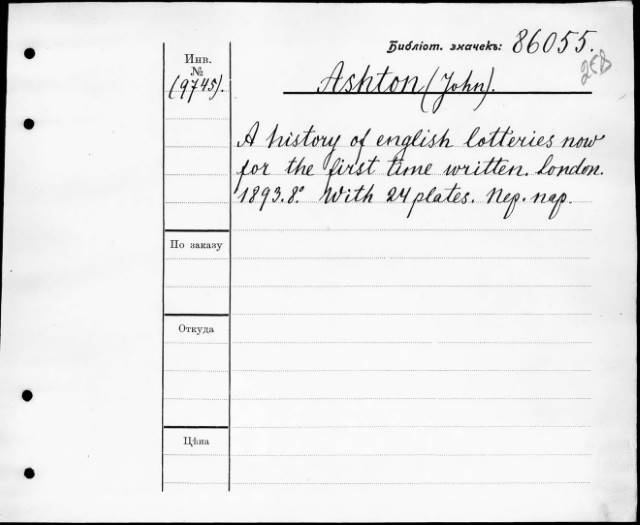 Библіот. значекъ: 86055.
Инв.
№
(9745).
Ashton (John).
A history of english lotteries now
for the first time written. London.
1893. 8º. With 24 plates. Пер. пар.
По заказу
Откуда
Цѣна